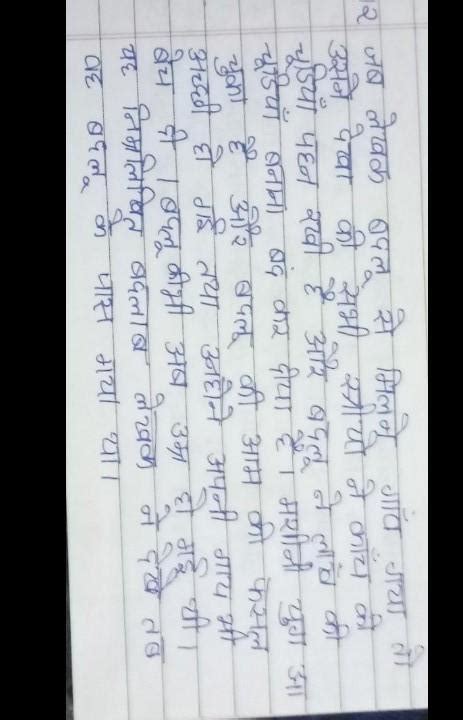 2 जब लेखक बदलू से मिलने गांव गया तो
उसने देखा की सभी स्त्रीयो ने कांच की
चूड़ियाँ पहन रखी है और बदलू ने लाख की
चूडियाँ बनाना बंद कर दिया है। मशीनी युग आ
चुका है और बदलू की आम की फसल
अच्छी हो गई तथा उन्होंने अपनी गाय भी
बेच दी। बदलू की भी अब उम्र हो गई थी।
यह निम्नलिखित बदलाव लेखक ने देखे जब
वह बदलू के पास गया था।